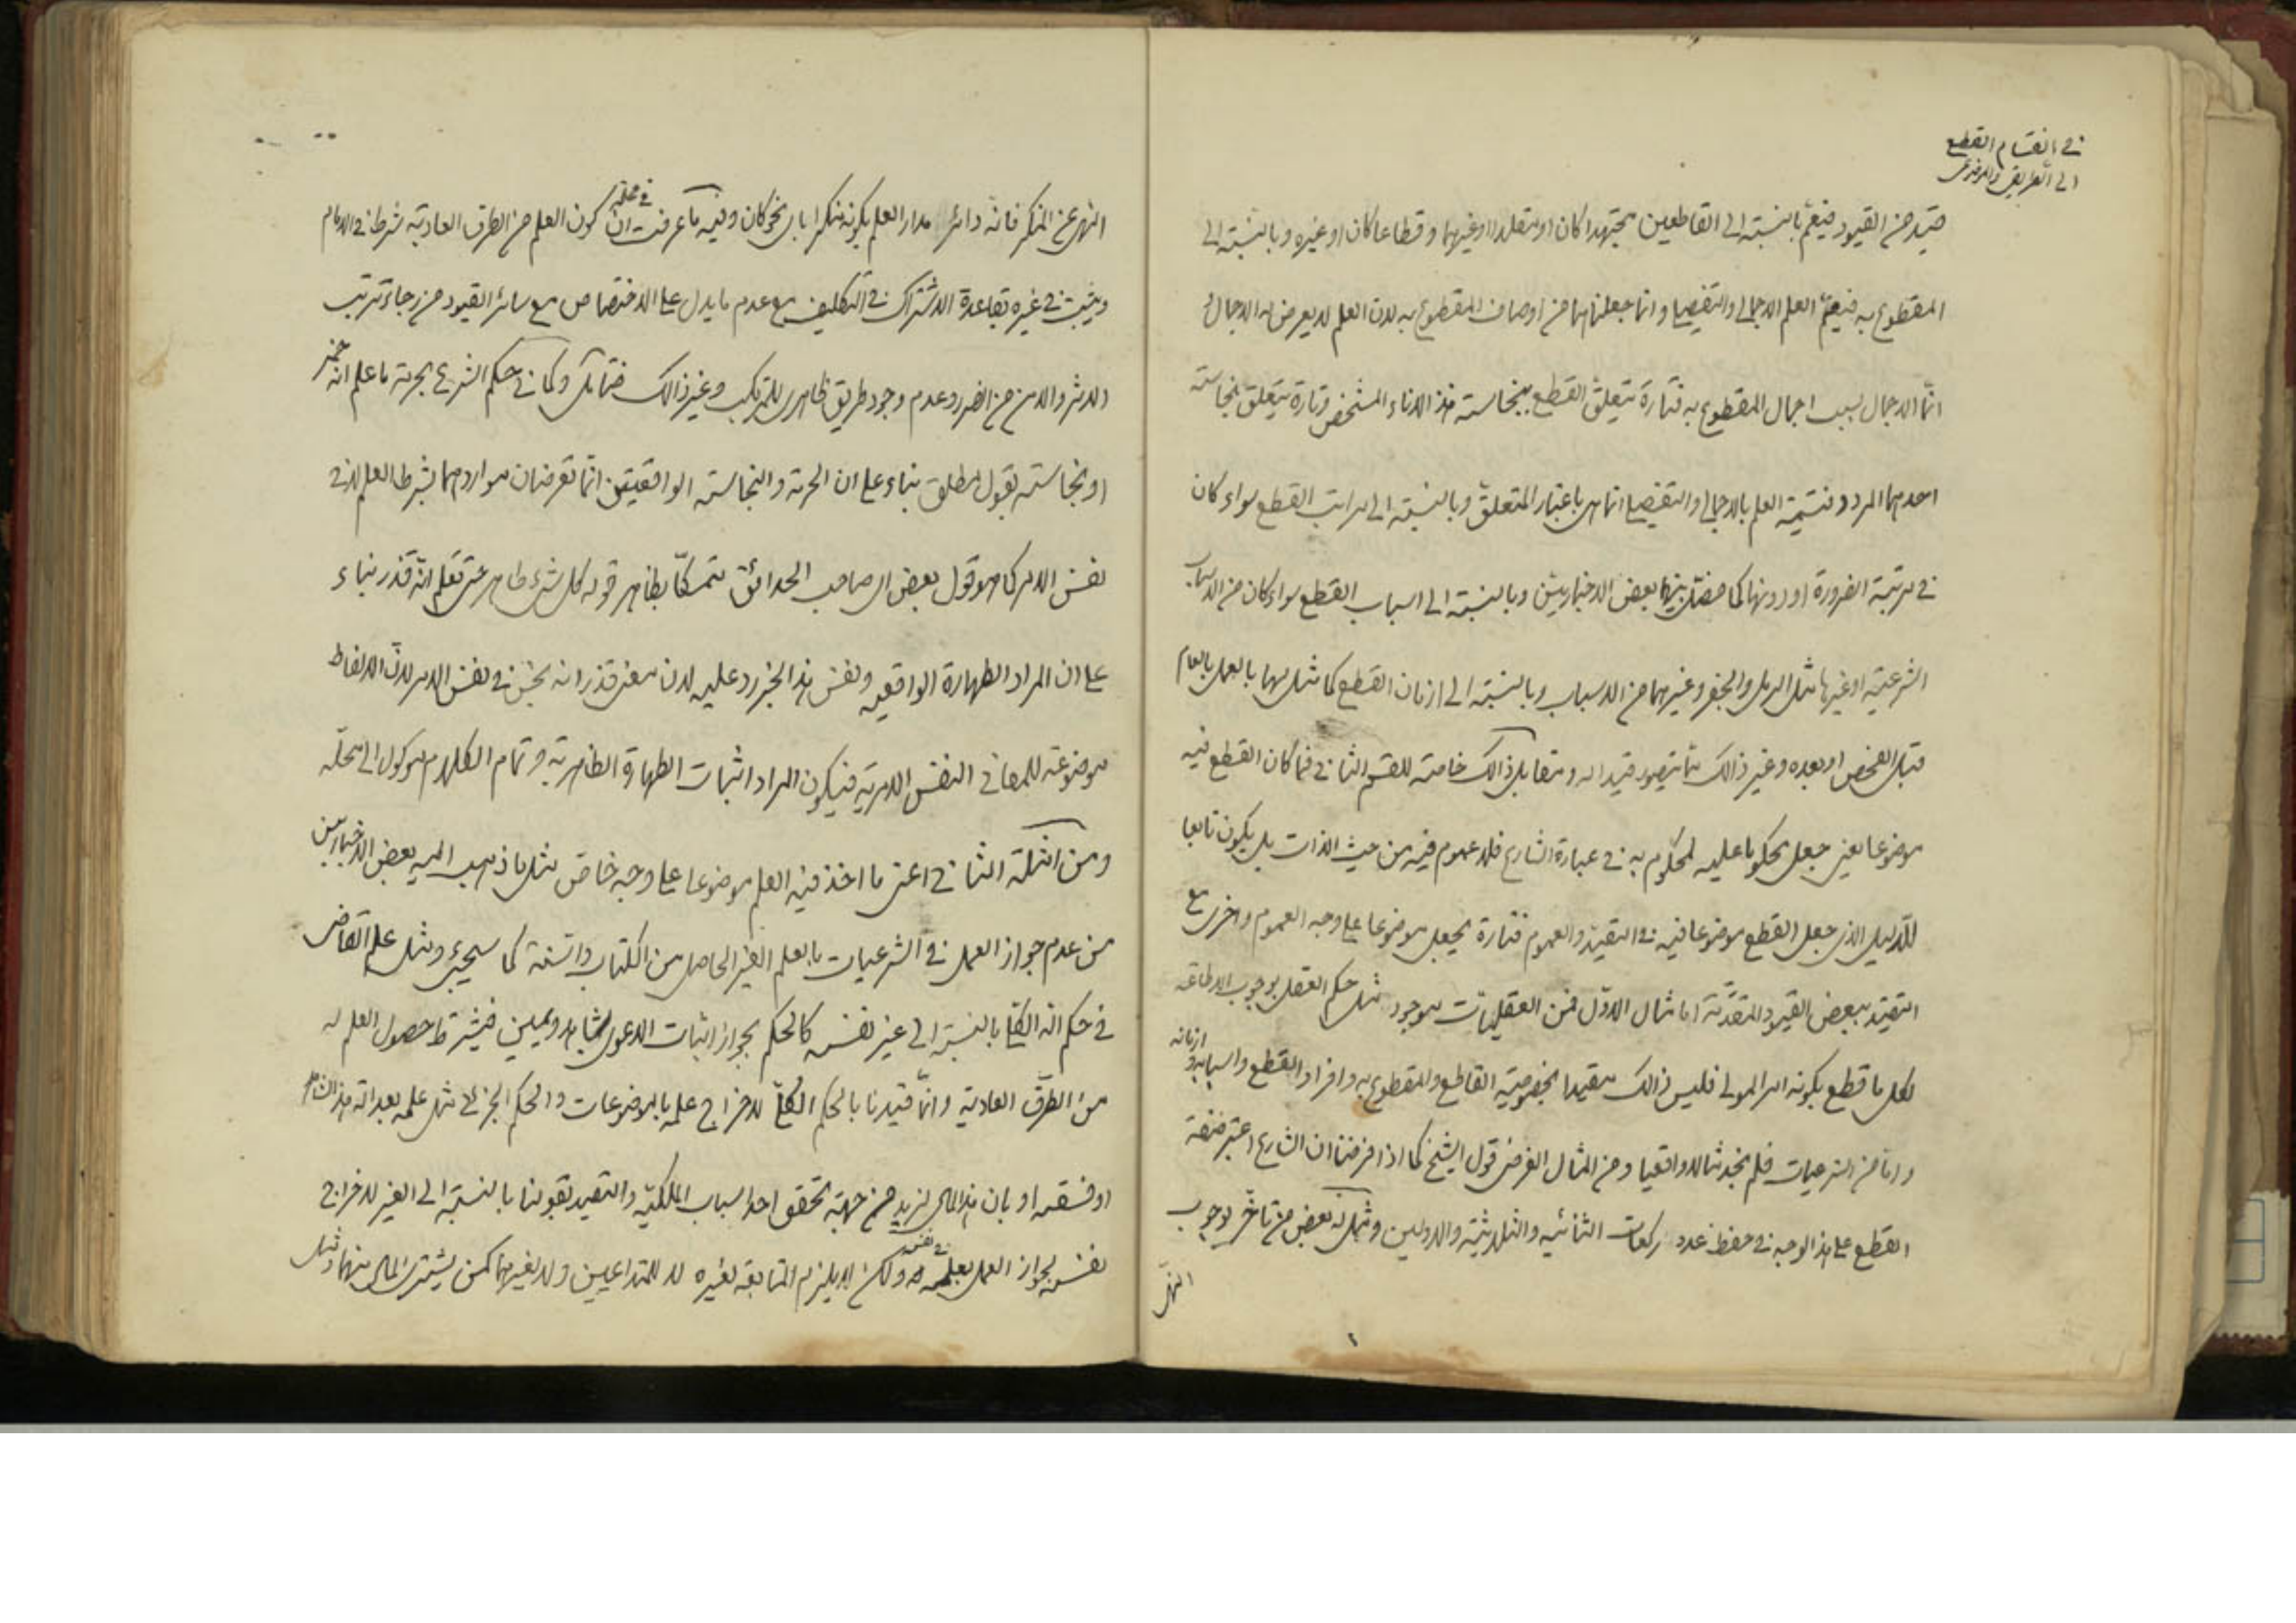 في انقسام القطع
الى الطريقي والموضوعي
قيد من القيود فيعمّ بالنسبة الى القاطعين مجتهدا كان او مقلدا او غيرهما وقطاعا كان او غيره وبالنسبة الى
المقطوع به فيعمّ العلم الاجمالي والتفصيلي وانما جعلناهما من اوصاف المقطوع به لان العلم لا يعرض له الاجمال و
انّما الاجمال بسبب اجمال المقطوع به فتارة يتعلق القطع بنجاسة هذا الاناء المشخص وتارة يتعلق بنجاسة
احدهما المردد فتسمية العلم بالاجمالي والتفصيلي انما هي باعتبار المتعلق وبالنسبة الى مراتب القطع سواء كان
في مرتبة الضرورة او دونها كما فصّل بينهما بعض الاخباريين وبالنسبة الى اسباب القطع سواء كان من الاسباب
الشرعية او غيرها مثل الرمل والجفر وغيرهما من الاسباب وبالنسبة الى ازمان القطع كما مثل لها بالعمل بالعام
قبل الفحص او بعده وغير ذالك مما يتصور قيدا له ويقابل ذالك خاصة للقسم الثاني فما كان القطع فيه
موضوعا يعني جعل محكوما عليه لمحكوم به في عبارة الشارع فلا عموم فيه من حيث الذات بل يكون تابعا
للدليل الذي جعل القطع موضوعا فيه في التقييد والعموم فتارة يجعل موضوعا على وجه العموم واخرى مع
التقييد ببعض القيود المتقدّمة اما مثال الاوّل فمن العقليات موجود مثل حكم العقل بوجوب الاطاعة
لكل ما قطع بكونه امر المولى فليس ذالك مقيدا بخصوصية القاطع والمقطوع به وافراد القطع واسبابه وازمانه
واما من الشرعيات فلم نجد مثالا واقعيا ومن المثال الفرضي قول الشيخ كما اذا فرضنا ان الشارع اعتبر صفة
القطع على هذا الوجه في حفظ عدد ركعات الثنائيه والثلاثيّة والاوليين ومثّل له بعض من تاخّر بوجوب
النهي
النهي عن المنكر فانه دائر مدار العلم بكونه منكرا باىّ نحو كان وفيه ما عرفت في محله ان كون العلم من الطرق العادية شرط في الامام
ويثبت في غيره بقاعدة الاشتراك في التكليف مع عدم ما يدل على الاختصاص مع سائر القيود من رجاء ترتب
الاثر والامن من الضرر وعدم وجود طريق ظاهري للمرتكب وغير ذالك فتامّل وكما في حكم الشرع بحرمة ما علم انه خمر
او نجاسته بقول مطلق بناء على ان الحرمة والنجاسة الواقعيتين انّما تعرضان مواردهما بشرط العلم لا في
نفس الامر كما هو قول بعض اى صاحب الحدائق متمسكا بظاهر قوله كل شيء طاهر حتى تعلم انّه قذر بناء
على ان المراد الطهارة الواقعيه ونفس هذا الخبر رد عليه لان معنى قذر انه نجس في نفس الامر لانّ الالفاظ
موضوعة للمعاني النفس الامرية فيكون المراد اثبات الطهارة الظاهرية وتمام الكلام موكول الى محلّه
ومن امثلة الثاني اعني ما اخذ فيه العلم موضوعا على وجه خاص مثل ما ذهب اليه بعض الاخباريين
من عدم جواز العمل في الشرعيات بالعلم الغير الحاصل من الكتاب والسنة كما سيجيء ومثل علم القاضي
في حكم الله الكلي بالنسبة الى غير نفسه كالحكم بجواز اثبات الدعوى بشاهد ويمين فيشترط حصول العلم له
من الطرق العادية وانّما قيدنا بالحكم الكلّي لاخراج علمه بالموضوعات والحكم الجزئي مثل علمه بعدالة هذا الشاهد
او فسقه او بان هذا المال لزيد من جهة تحقق احد اسباب الملكيّه والتقييد بقولنا بالنسبة الى الغير لاخراج
نفسه لجواز العمل بعلمه في نفسه ولكن لا يلزم المتابعة لغيره لا للمتداعيين ولا لغيرهما كمن يشتري المال منهما ومثل